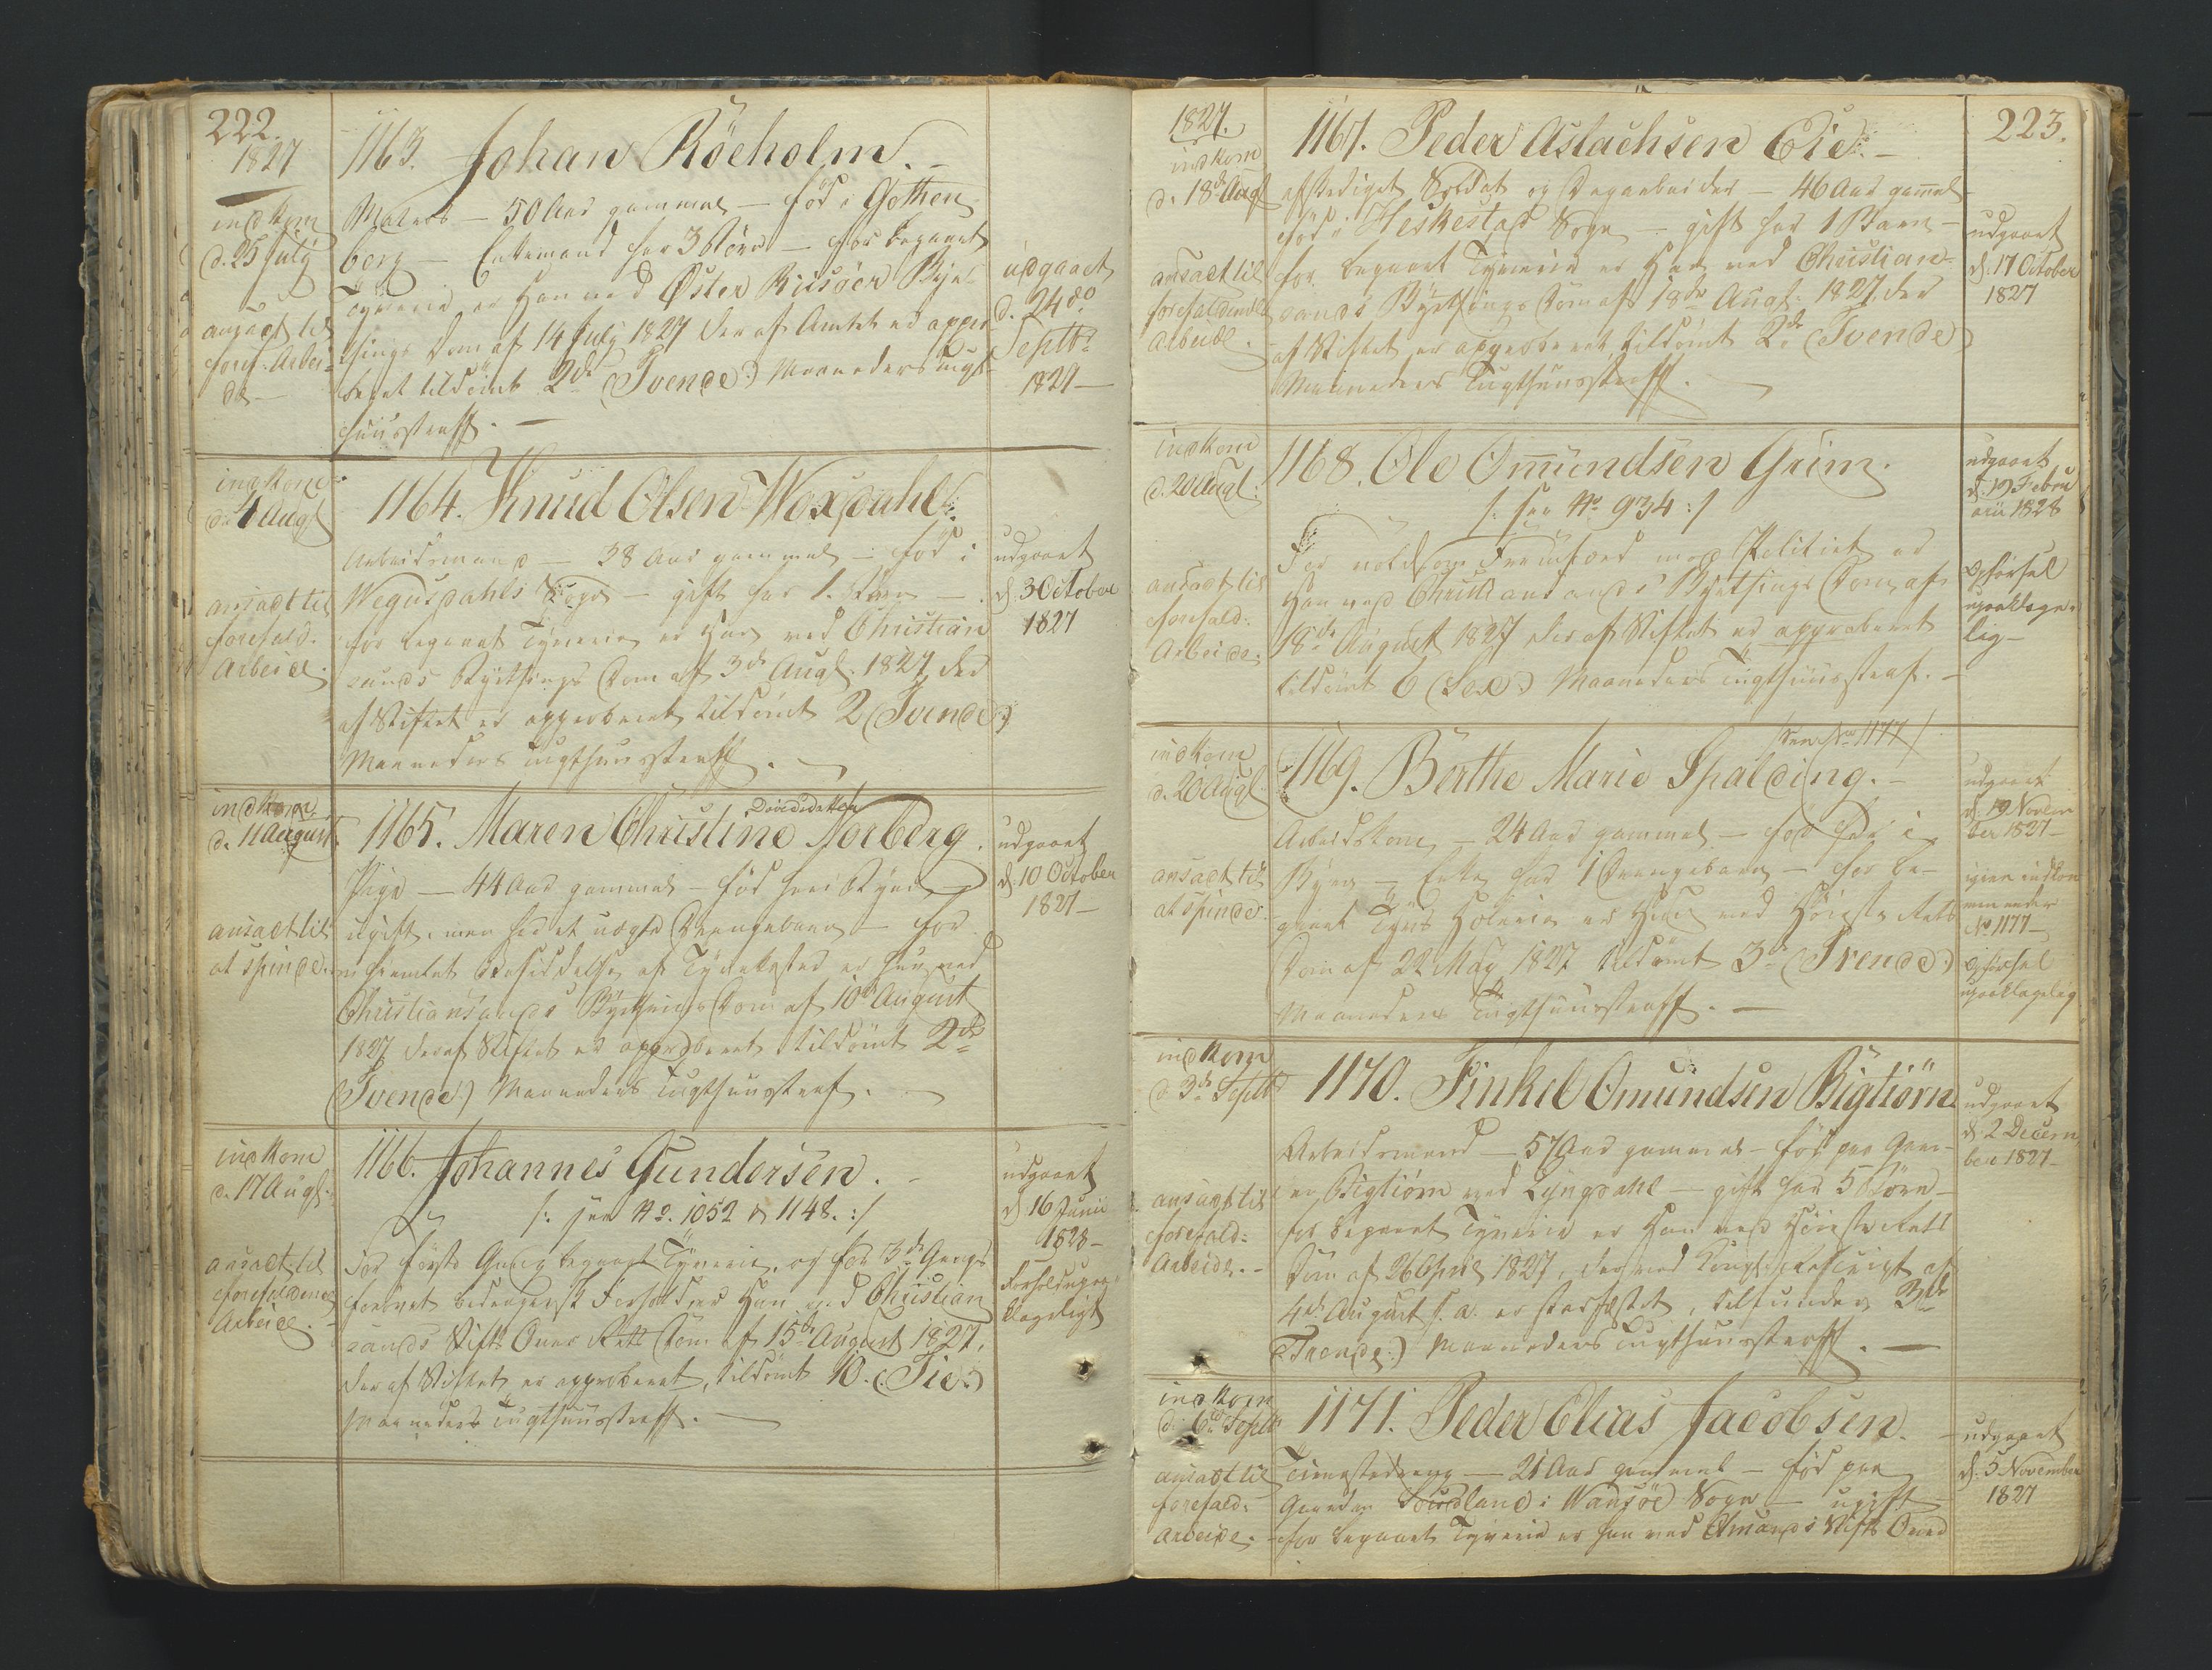 222.
1827
indkom
d. 25 July
ansadt til
foref. Arbei-
de
1163. Johan Röeholm.
Matros – 50 Aar gammel – föd i Gothen
berg – Enkemand har 3 Börn – for begaaet
Tyverie er Han ved Öster Riisöer Bye-
things Dom af 14 July 1827 der af Amtet er appro-
beret tildömt 2de (Tvende) Maaneders Tugt-
huusstraff.
udgaaet
d. 24de
Septbr
1827
indkom
d. 4 Augt
ansadt til
forefald.
Arbeide.
1164. Knud Olsen Woxdahl.
Arbeidsmand – 38 Aar gammel – föd i
Wegusdahls Sogn – gift har 1. Barn –
for begaaet Tyverie er Han ved Christian
sands Byethings Dom af 3de Augt. 1827 der
af Stiftet er approberet tildömt 2 (Tvende)
Maaneders Tugthuusstraff.
udgaaet
d. 3 October
1827
indkom
d. 11 August.
ansadt til
at spinde.
Davidsdatter
1165. Maren Christine Norberg.
Pige – 44 Aar gammel – föd her i Byen –
ugift, men har et uægte Drengebarn – for
uhiemlet Besiddelse af Tyvekoster er hun ved
Christiansands Byethings Dom af 10de August
1827 der af Stiftet er approberet tildömt 2de
(Tvende) Maaneders Tugthuusstraf.
udgaaet
d. 10 October
1827
indkom
d. 17 Augt.
ansadt til
forefaldende
Arbeide.
1166. Johannes Gundersen.
/: see No. 1052 & 1148. :/
For förste Gang begaaet Tyverie, og for 3de Gangs
forövet bedragersk Forhold er Han ved Christian
sands Stifts Over Rets Dom af 15de August 1827,
der af Stiftet er approberet, tildömt 10. (Tie)
Maaneders Tugthuusstraff.
udgaaet
d. 16 Junii
1828
Forhold upaa-
klageligt
1827.
indkom
d. 18de Augt
ansadt til
forefaldende
Arbeide.
1167. Peder Aslachsen Eie.
afskediget Soldat og Dagarbeider – 46 Aar gammel
föd i Heskestad Sogn – gift har 1 Barn –
for begaaet Tyverie er Han ved Christian-
sands Byethings Dom af 18de Augt. 1827 der
af Stiftet er approberet tildömt 2de (Tvende)
Maaneders Tugthuusstraff.
223.
udgaaet
d. 17 October
1827
indkom
d. 20 Augt.
ansadt til
forefald:
Arbeide.
1168. Ole Omundsen Grim.
/: see No 934 :/
For voldsom Fremfærd mod Politiet er
Han ved Christiansands Byethings Dom af
18de August 1827 der af Stiftet er approberet
tildömt 6 (Sex) Maaneders Tugthuusstraf.
udgaaet
d. 19 Febru
arii 1828
Opförsel
upaaklage-
lig
indkom
d. 20 Augt.
ansadt til
at spinde.
/See No 1177/
1169. Berthe Marie Spalding.
Arbeidskone – 24 Aar gammel – föd her i
Byen – Enke har 1 Drengebarn – for be-
gaaet Tyvs Hælerie er Hun ved Höieste Rets
Dom af 22 May 1827 tildömt 3de (Trende)
Maaneders Tugthuusstraff.
udgaaet
d. 19 Novem
ber 1827
igien indkom
men under
No 1177
Opförsel
upaaklagelig
indkom
d. 3de Septb
ansadt til
forefald:
Arbeide.
1170. Tinkel Omundsen Bigtiörn.
Arbeidsmand – 57 Aar gammel – föd paa Gaar-
den Bigtiörn ved Lyngdahl – gift har 5 Börn –
for begaaet Tyverie er Han ved Höieste Rets
Dom af 26 April 1827, der ved Kongl. Rescript af
4de August s. a. er stadfæstet, tilfunden 3de
(Trende) Maaneders Tugthuusstraff.
udgaaet
d. 2 Decem
ber 1827
indkom
d. 6te Septb
ansadt til
forefald:
Arbeide.
1171. Peder Elias Jacobsen.
Tienestedreng – 21 Aar gammel – föd paa
Gaarden i Wansöe Sogn – ugift
for begaaet Tyverie er han ved Chsands Stifts Over
udgaaet
d. 5 November
1827